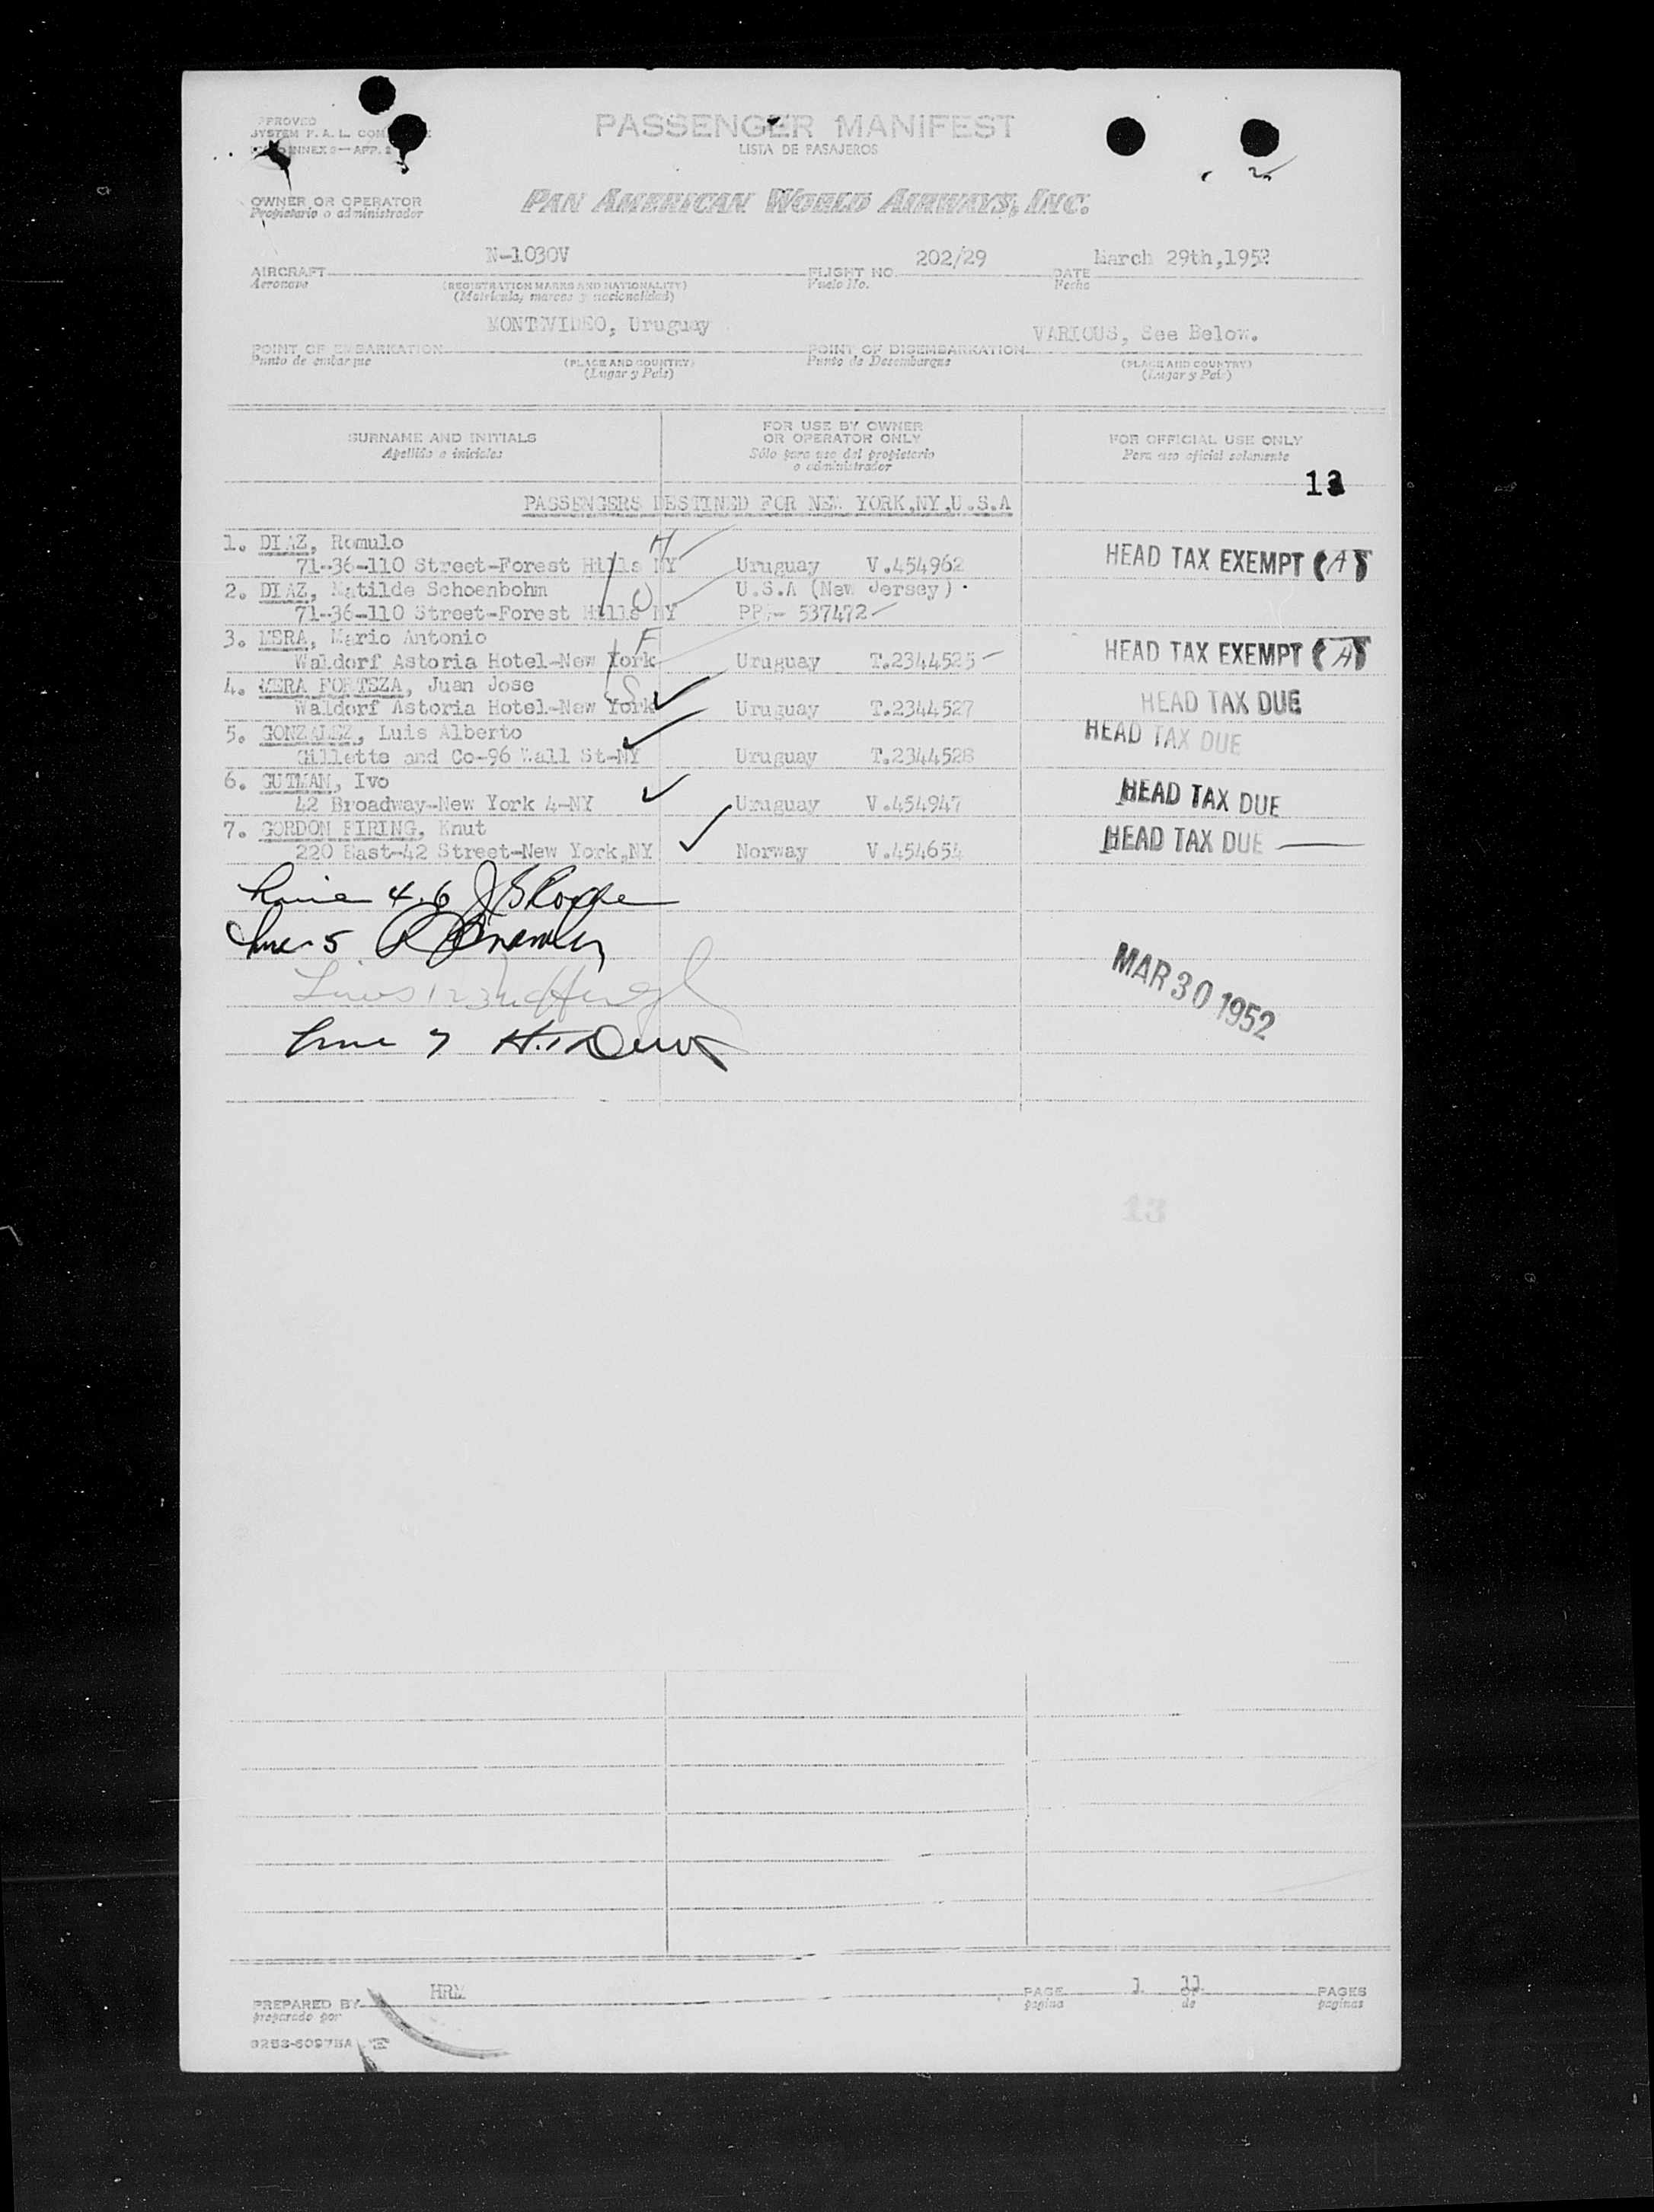 PASSENGER MANIFEST
LISTA DE PASAJEROS
OWNER OR OPERATOR
Propietario o administrador
PAN AMERICAN WORLD AIRWAYS, INC.
N-1030V 202/29 March 29th,1952
AIRCRAFT FLIGHT NO. DATE
Aeronave (REGISTRATION MARKS AND NATIONALITY) Vuelo No. Fecha
(Matricula, marcas y nacionalidad)
MONTEVIDEO, Uruguay VARIOUS, See Below.
POINT OF EMBARKATION POINT OF DISEMBARKATION
Punto de embarque (PLACE AND COUNTRY) Punto de Desembarque (PLACE AND COUNTRY)
(Lugar y País) (Lugar y País)
SURNAME AND INITIALS FOR USE BY OWNER OR OPERATOR ONLY FOR OFFICIAL USE ONLY
Apellido e iniciales Sólo para uso del propietario o administrador Para uso oficial solamente
PASSENGERS DESTINED FOR NEW YORK,NY,U.S.A
1. DIAZ, Romulo
71-36-110 Street-Forest Hills NY Uruguay V.454962 HEAD TAX EXEMPT (A)
2. DIAZ, Matilde Schoenbohm U.S.A (New Jersey)
71-36-110 Street-Forest Hills NY 537472
3. MERA, Mario Antonio
Waldorf Astoria Hotel-New York Uruguay T.2344525 HEAD TAX EXEMPT (A)
4. MERA FORTEZA, Juan Jose
Waldorf Astoria Hotel-New York Uruguay T.2344527 HEAD TAX DUE
5. GONZALEZ, Luis Alberto HEAD TAX DUE
Gillette and Co-96 Wall St-NY Uruguay T.2344528
6. GUTMAN, Ivo
42 Broadway-New York 4-NY Uruguay V.454947 HEAD TAX DUE
7. GORDON FIRING, Knut HEAD TAX DUE
220 East-42 Street-New York,NY Norway V.454654
Line 4.6
Line 5
Lines 1 2 3
MAR 30 1952
Line 7
13
HRM 1 11
PREPARED BY PAGE OF PAGES
preparado por página de páginas